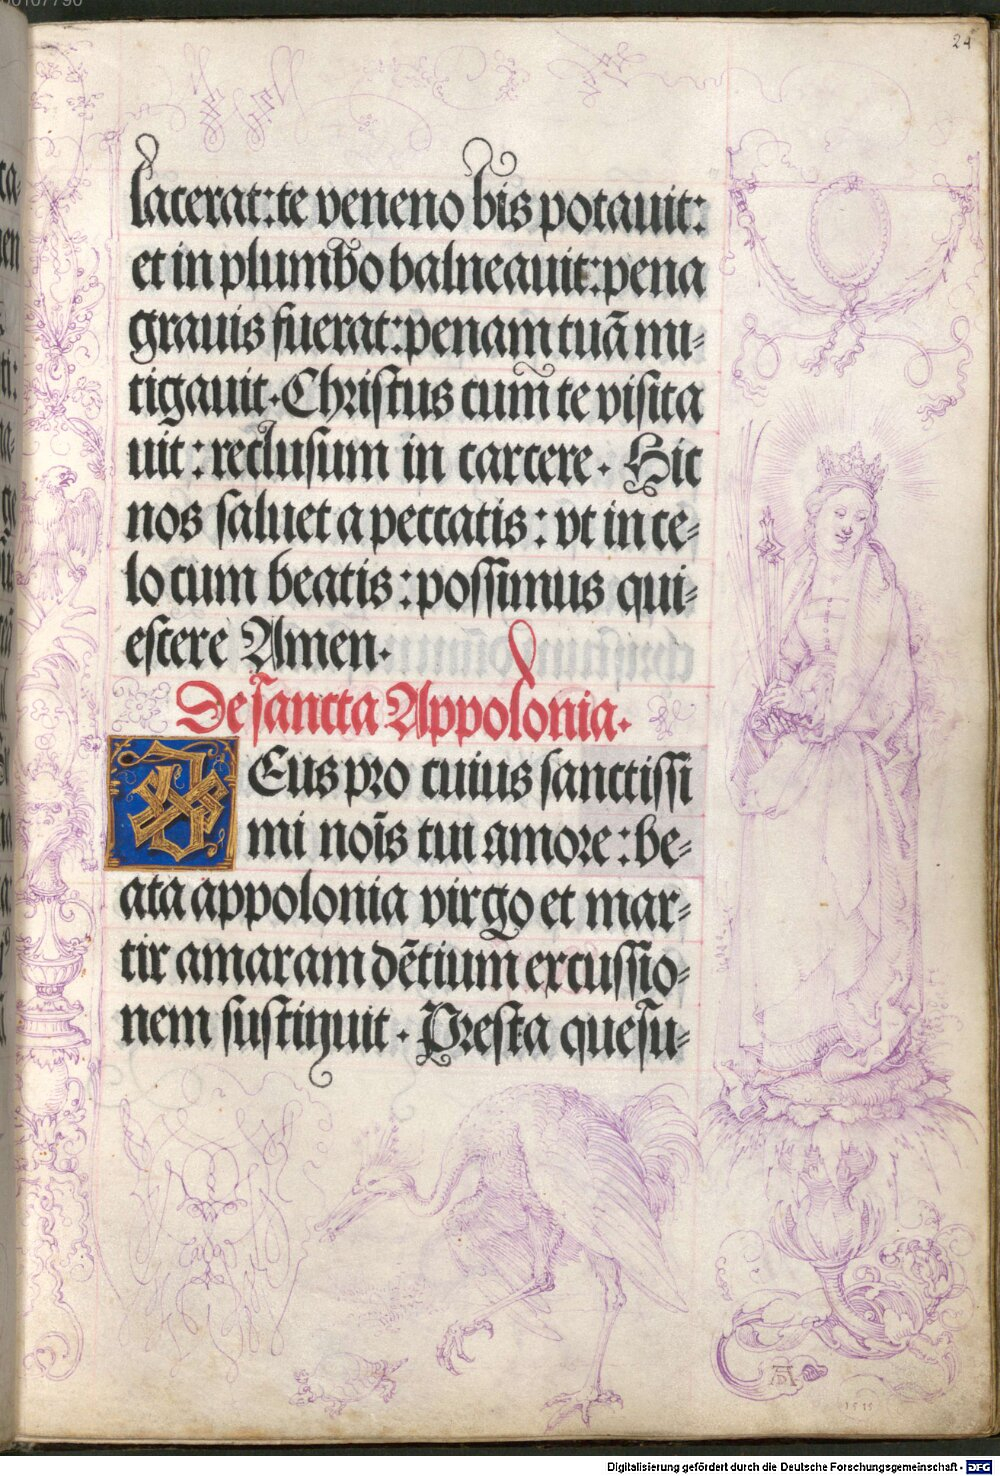 24
lacerat: te veneno bis potauit:
et in plumbo balneauit: pena
grauis fuerat: penam tuā mi-
tigauit. Christus cum te visita
uit: reclusum in carcere. Hic
nos saluet a peccatis: vt in ce-
lo cum beatis: possimus qui-
escere Amen.
De sancta Appolonia.
DEus pro cuius sanctissi
mi noīs tui amore: be-
ata appolonia virgo et mar-
tir amaram dētium excussio-
nem sustinuit. Presta quesu-
AD
1515
Digitalisierung gefördert durch die Deutsche Forschungsgemeinschaft - DFG